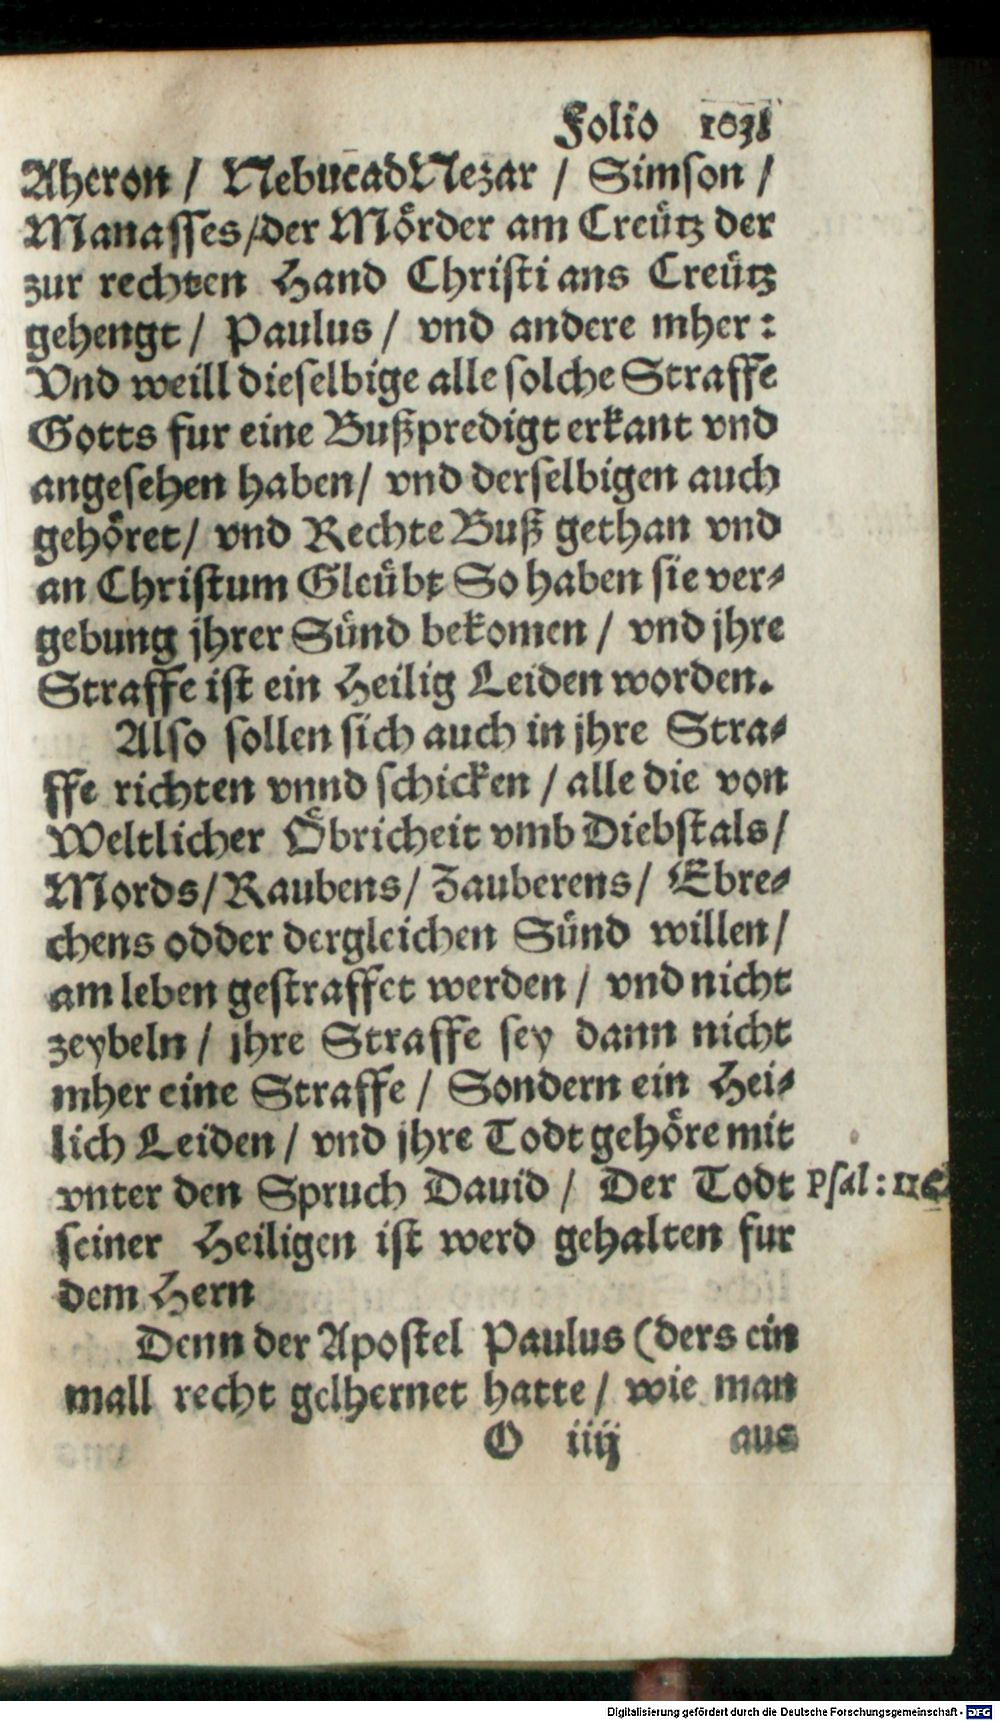 Folio
Aheron / NebucadNezar / Simson /
Manasses / der Mörder am Creütz der
zur rechten Hand Christi ans Creütz
gehengt / Paulus / vnd andere mher:
Vnd weill dieselbige alle solche Straffe
Gotts fur eine Bußpredigt erkant vnd
angesehen haben / vnd derselbigen auch
gehöret / vnd Rechte Buß gethan vnd
an Christum Gleübt So haben sie ver⸗
gebung jhrer Sünd bekomen / vnd jhre
Straffe ist ein Heilig Leiden worden.
Also sollen sich auch in jhre Stra⸗
ffe richten vnnd schicken / alle die von
Weltlicher Öbricheit vmb Diebstals /
Mords / Raubens / Zauberens / Ebre⸗
chens odder dergleichen Sünd willen /
am leben gestraffet werden / vnd nicht
zeybeln / jhre Straffe sey dann nicht
mher eine Straffe / Sondern ein Hei⸗
lich Leiden / vnd jhre Todt gehöre mit
vnter den Spruch Dauid / Der Todt
Psal: 116
seiner Heiligen ist werd gehalten fur
dem Hern
Denn der Apostel Paulus (ders ein
mall recht gelhernet hatte / wie man
O iiij aus
Digitalisierung gefördert durch die Deutsche Forschungsgemeinschaft - DFG